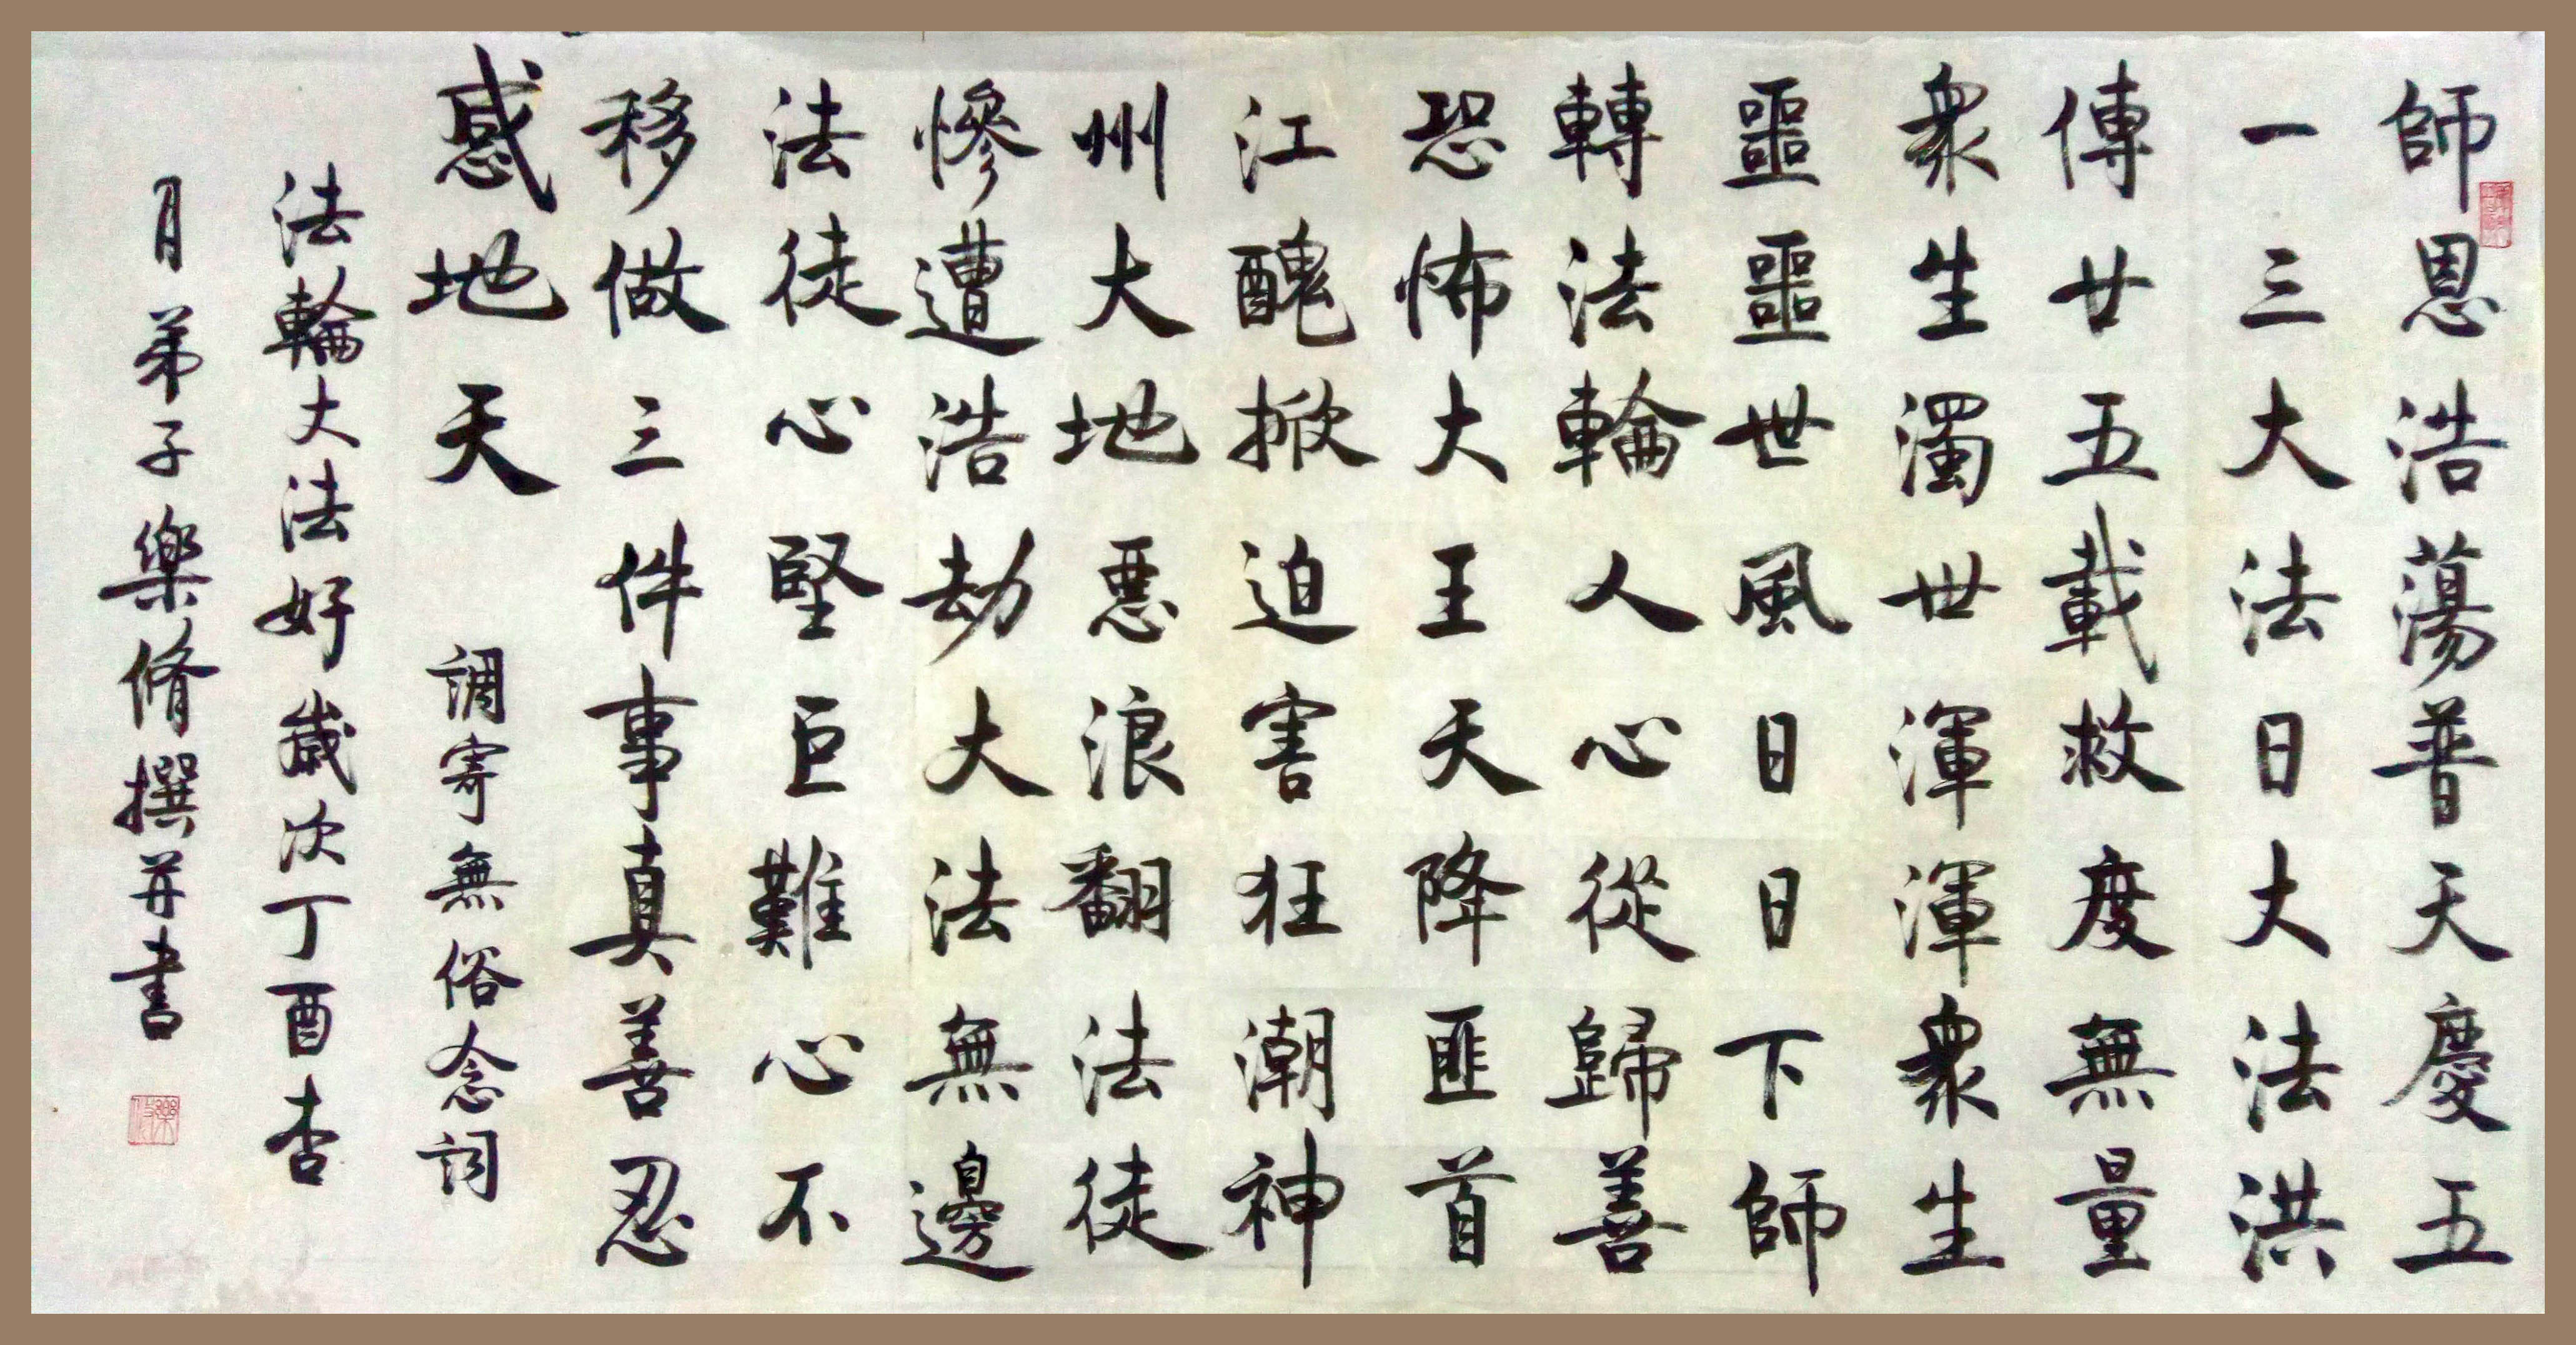 師恩浩蕩普天慶五
一三大法日大法洪
傳廿五載救度無量
衆生濁世渾渾衆生
噩噩世風日日下師
轉法輪人心從歸善
恐怖大王天降匪首
江醜掀迫害狂潮神
州大地惡浪翻法徒
慘遭浩劫大法無邊
法徒心堅巨難心不
移做三件事真善忍
惑地天
調寄無俗念詞
法輪大法好歲次丁酉杏
月弟子樂脩撰并書